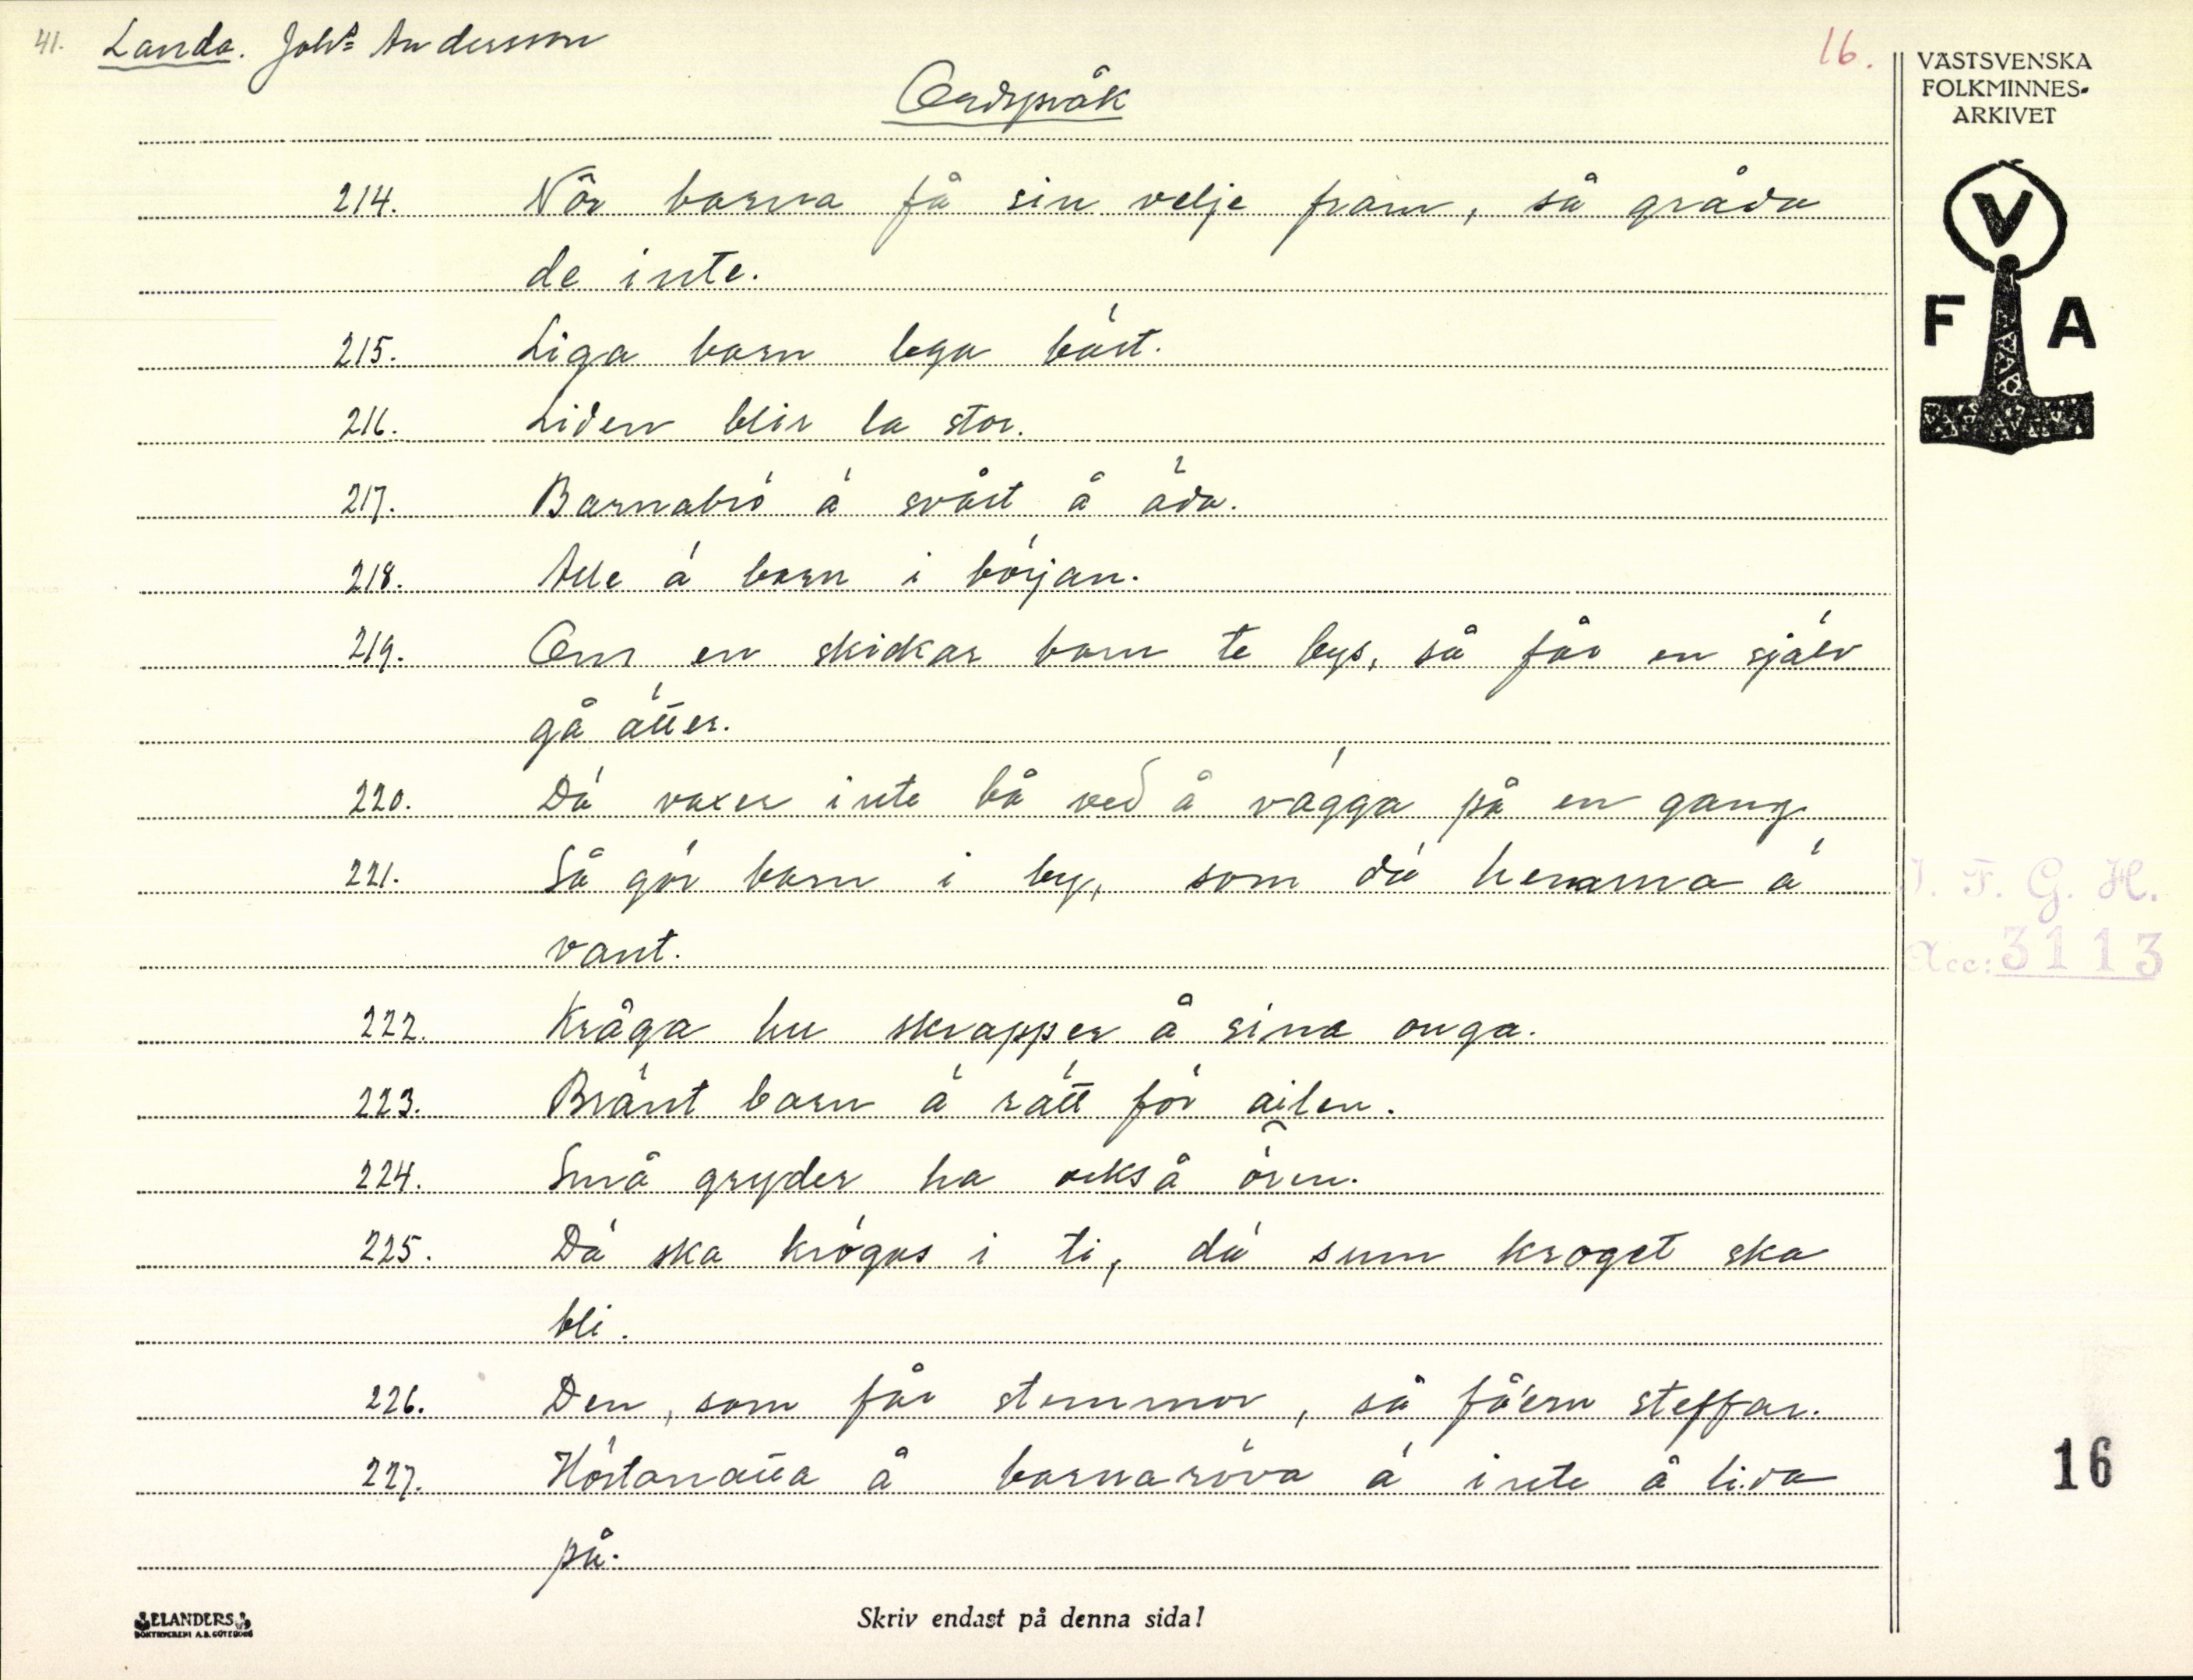 41. Landa. Johs Andersson
16.
VÄSTSVENSKA
FOLKMINNES-
ARKIVET
Ordspråk
V
F A
214. När barna få sin velje fram, så gråda
de inte.
215. Liga barn lega bäst.
216. Liden blir la stor.
217. Barnabrö ä svårt å äda.
218. Alle ä barn i början.
219. Om en skickar barn te bys, så får en själv
gå ätter.
220. Dä vaxer inte bå ved å vägga på en gang
221. Så gör barn i by, som dä hemma ä
vant.
I. F. G. H.
Acc: 3113
222. Kråga hu skrapper å sina onga.
223. Bränt barn ä rätt för ailen.
224. Små gryder ha också ören.
225. Dä ska krögas i ti, dä sum kroget ska
bli.
226. Den, som får stemmor, så få'ern steffar.
227. Höstanatta å barnaröva ä inte å lida
på.
16
ELANDERS
BOKTRYCKERI A.B. GÖTEBORG
Skriv endast på denna sida!